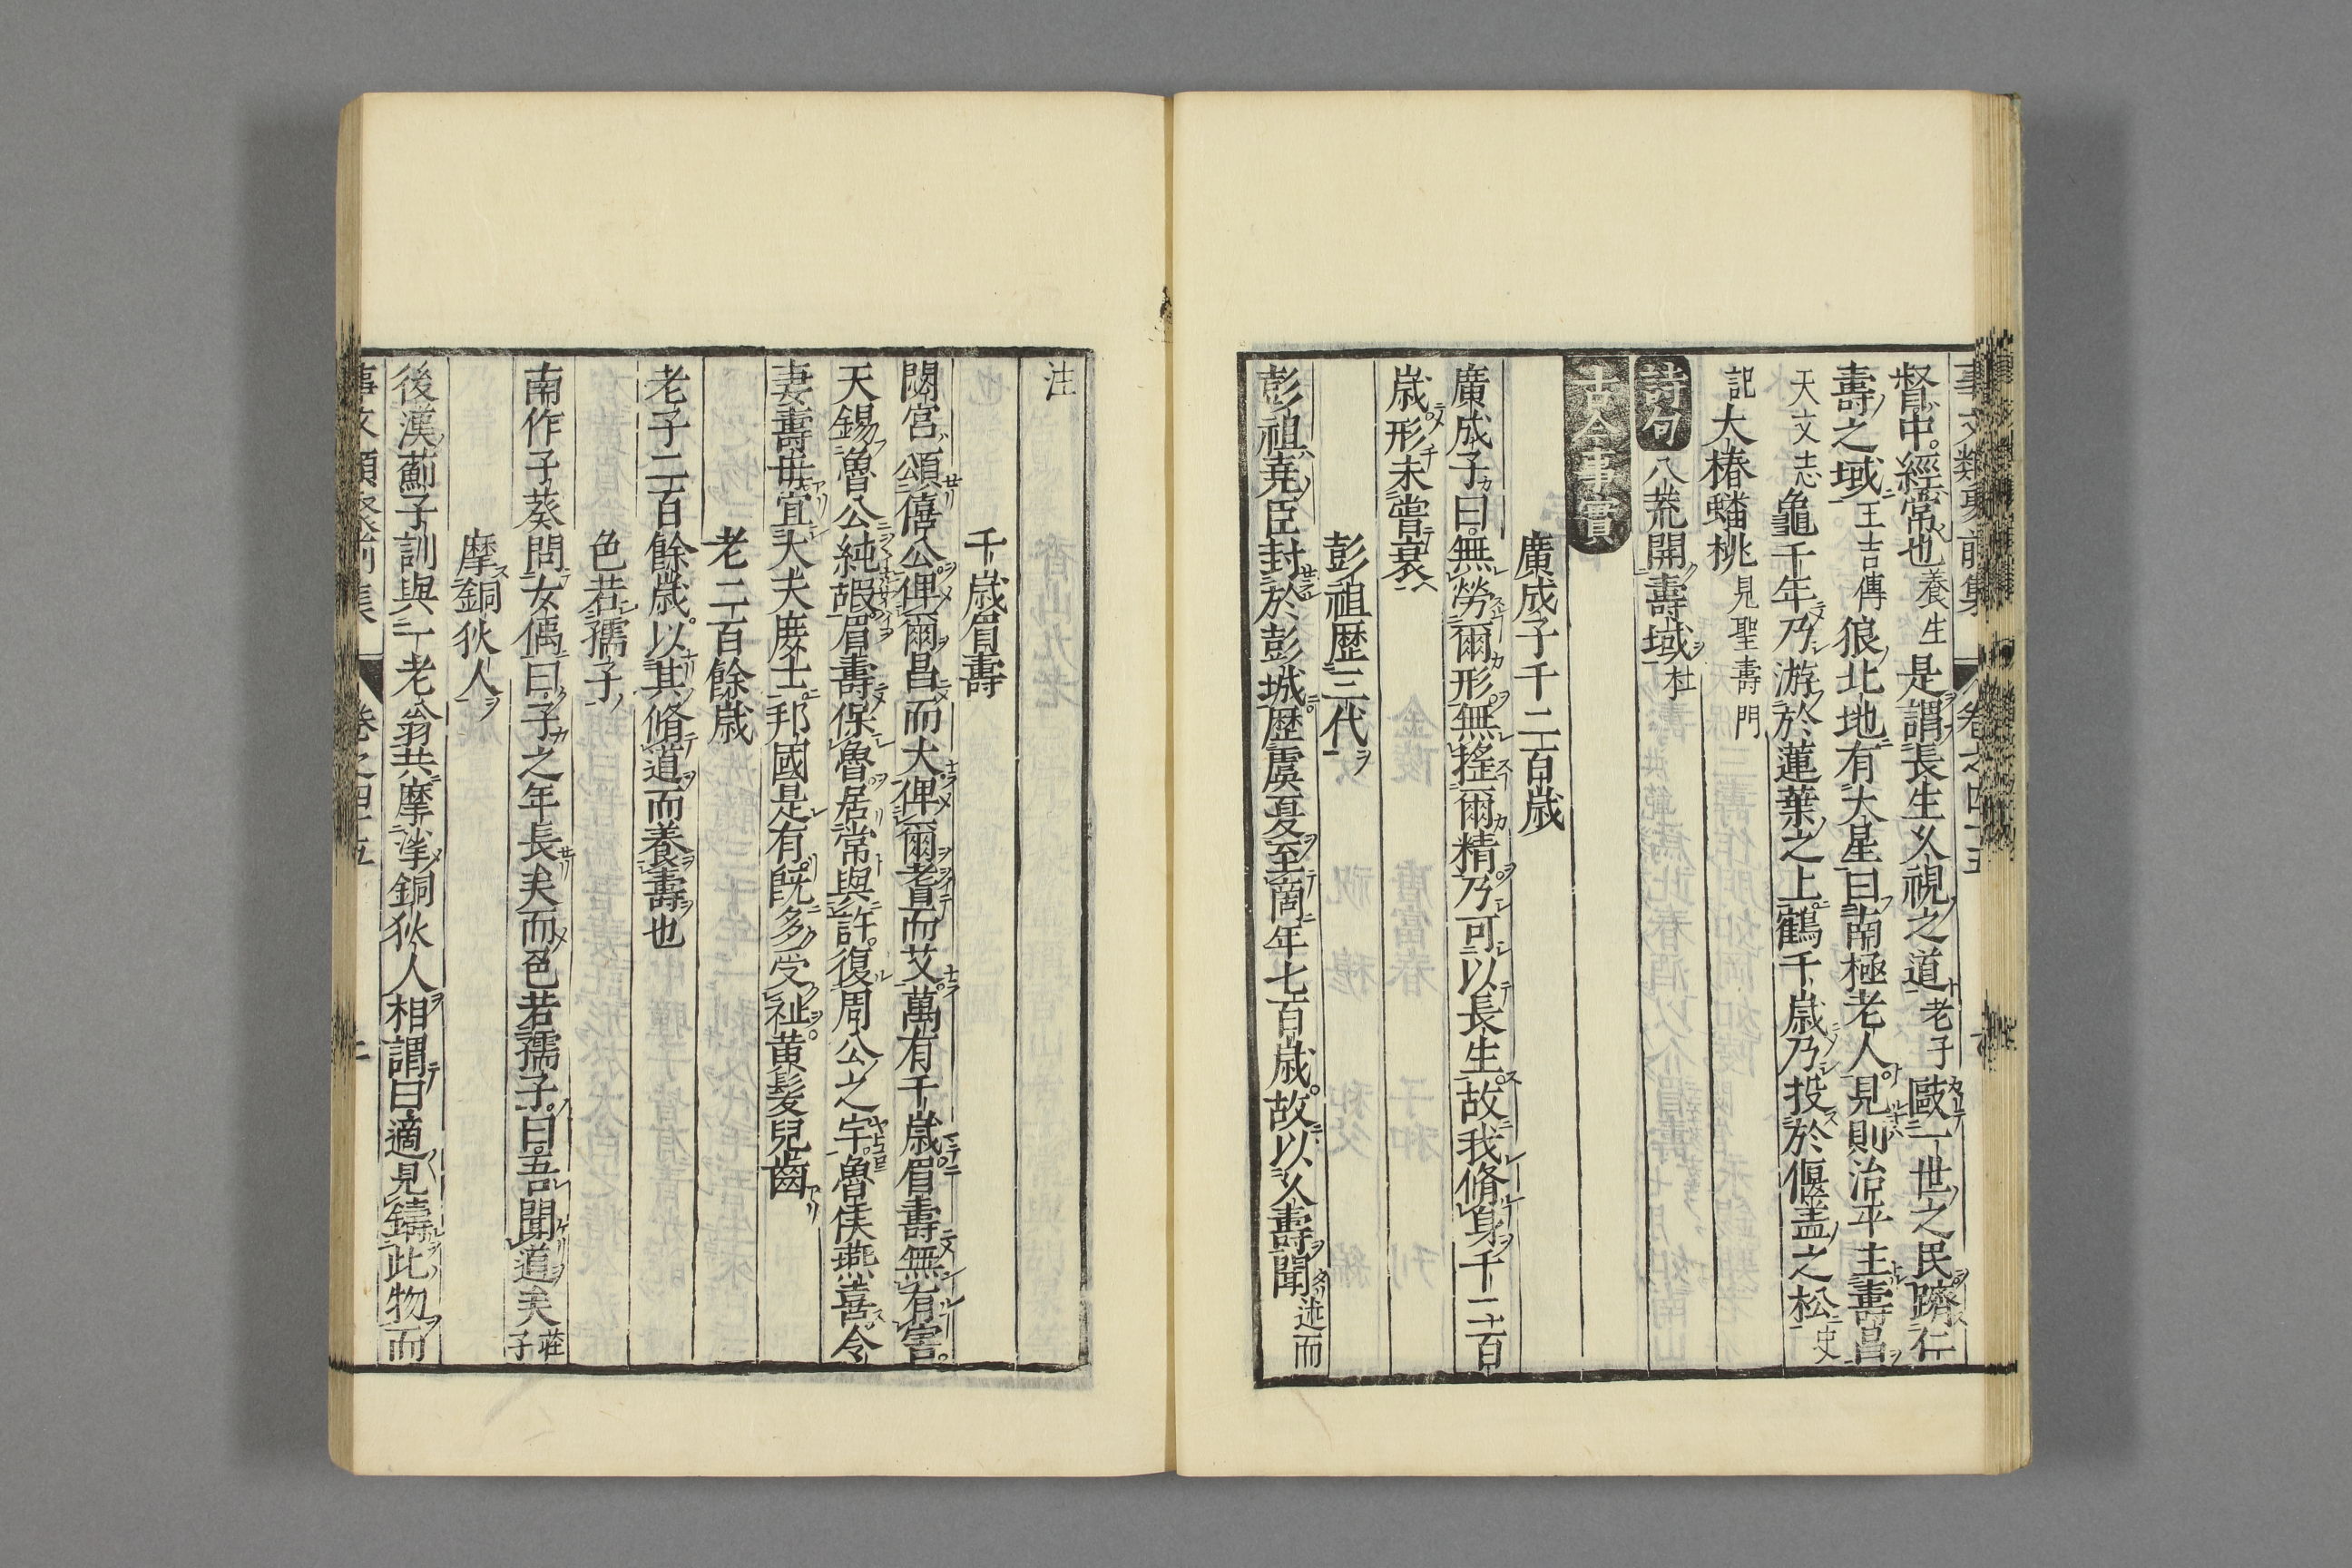 督中經常也養生是謂長生久視之道老子敺一世之民躋仁
壽之域王吉傳狼北地有大星曰南極老人見則治平主壽昌
天文志龜千年乃游於蓮葉之上鶴千歲乃投於偃盖之松史
記大椿蟠桃見聖壽門
詩句八荒開壽域杜
古今事實
廣成子千二百歲
廣成子曰無勞爾形無搖爾精乃可以長生故我脩身千二百
歲形未嘗衰
彭祖歷三代
彭祖堯臣封於彭城歷虞夏至商年七百歲故以久壽聞述而
注
千歲眉壽
閟宮頌僖公俾爾昌而大俾爾耆而艾萬有千歲眉壽無有害
天錫魯公純嘏眉壽保魯居常與許復周公之宇魯侯燕喜令
妻壽毋宜大夫庶士邦國是有既多受祉黃髮兒齒
老二百餘歲
老子二百餘歲以其脩道而養壽也
色若孺子
南作子葵問女偊曰子之年長矣而色若孺子曰吾聞道矣莊子
摩銅狄人
後漢薊子訓與一老翁共摩挲銅狄人相謂曰適見鑄此物而